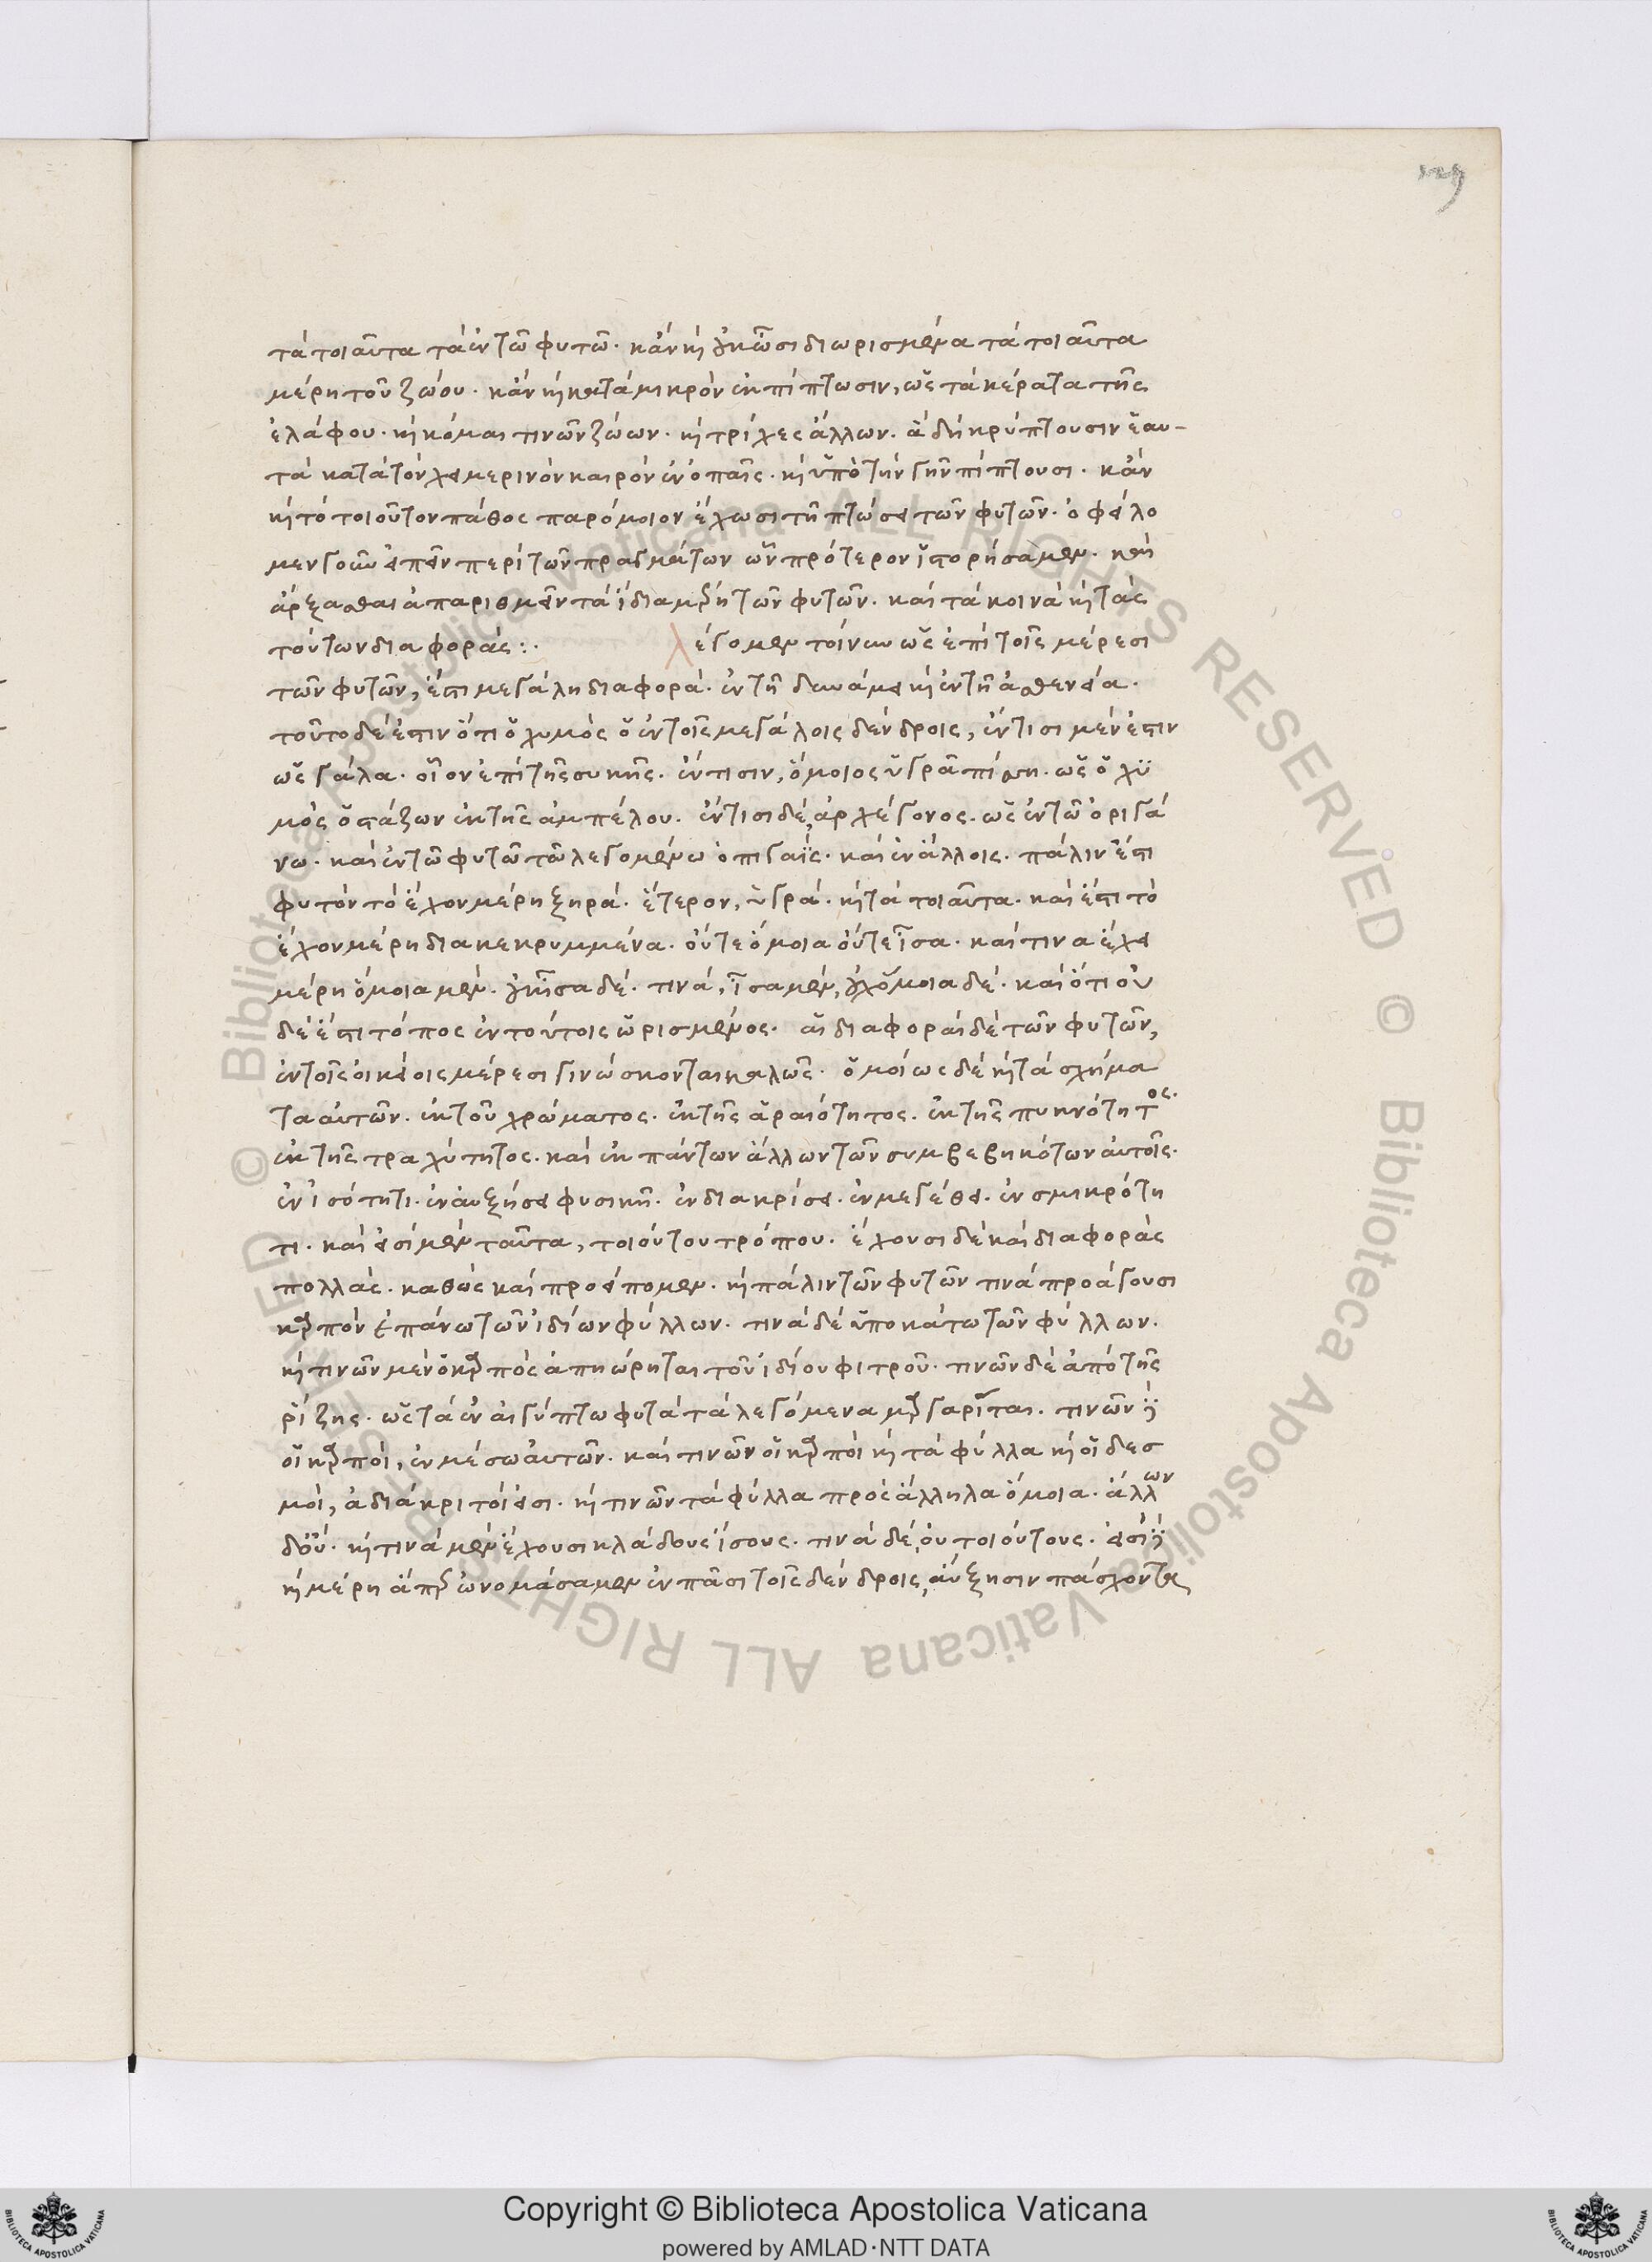 129
τὰ τοιαῦτα τὰ ἐν τῶ φυτῶ. κἂν καὶ οὐκ ὦσι διωρισμένα τὰ τοιαῦτα
μέρη τοῦ ζώου. κἂν καὶ κατὰ μικρὸν ἐκπίπτωσιν, ὡς τὰ κέρατα τῆς
ἐλάφου. καὶ κόμαι τινῶν ζώων. καὶ τρίχες ἄλλων. ἃ δὴ κρύπτουσιν ἑαυ-
τὰ κατὰ τὸν χειμερινὸν καιρὸν ἐν ὀπαῖς. καὶ ὑπὸ τὴν γῆν πίπτουσι. κἂν
καὶ τὸ τοιοῦτον πάθος παρόμοιον ἔχωσι τῆ πτώσει τῶν φυτῶν. ὀφείλο
μεν γοῦν εἰπεῖν περὶ τῶν πραγμάτων ὧν πρότερον ἱστορήσαμεν. καὶ
ἄρξασθαι ἀπαριθμεῖν τὰ ἴδια μέρη τῶν φυτῶν. καὶ τὰ κοινὰ καὶ τὰς
τούτων διαφοράς:. λέγομεν τοίνυν ὡς ἐπὶ τοῖς μέρεσι
τῶν φυτῶν, ἔστι μεγάλη διαφορά. ἐν τῆ δυνάμει καὶ ἐν τῆ ἀσθενεία.
τοῦτο δέ ἐστιν ὅτι ὁ χυμὸς ὁ ἐν τοῖς μεγάλοις δένδροις, ἔν τισι μέν ἐστιν
ὡς γάλα. οἷον ἐπὶ τῆς συκῆς. ἔν τισιν, ὅμοιος ὑγρᾶ πίσση. ὡς ὁ χυ
μὸς ὁ στάζων ἐκ τῆς ἀμπέλου. ἔν τισι δὲ, ἀρχέγονος. ὡς ἐν τῶ ὀριγά
νω. καὶ ἐν τῶ φυτῶ τῶ λεγομένω ὀπιγαΐς. καὶ ἐν ἄλλοις. πάλιν ἔστι
φυτὸν τὸ ἔχον μέρη ξηρά. ἕτερον, ὑγρά. καὶ τὰ τοιαῦτα. καὶ ἔστι τὸ
ἔχον μέρη διακεκρυμμένα. οὔτε ὅμοια οὔτε ἶσα. καί τινα ἔχει
μέρη ὅμοια μὲν. οὐκ ἶσα δέ. τινὰ, ἶσα μὲν, οὐχ ὅμοια δέ. καὶ ὅτι οὐ
δὲ ἔστι τόπος ἐν τούτοις ὡρισμένος. αἱ διαφοραὶ δὲ τῶν φυτῶν,
ἐν τοῖς οἰκείοις μέρεσι γινώσκονται καλῶς. ὁμοίως δὲ καὶ τὰ σχήμα
τα αὐτῶν. ἐκ τοῦ χρώματος. ἐκ τῆς ἀραιότητος. ἐκ τῆς πυκνότητος.
ἐκ τῆς τραχύτητος. καὶ ἐκ πάντων ἄλλων τῶν συμβεβηκότων αὐτοῖς.
ἐν ἰσότητι. ἐν αὐξήσει φυσικῆ. ἐν διακρίσει. ἐν μεγέθει. ἐν σμικρότη
τι. καὶ εἰσὶ μὲν ταῦτα, τοιούτου τρόπου. ἔχουσι δὲ καὶ διαφορὰς
πολλάς. καθὼς καὶ προείπομεν. καὶ πάλιν τῶν φυτῶν τινὰ προάγουσι
καρπὸν ἐπάνω τῶν ἰδίων φύλλων. τινὰ δὲ ὑποκάτω τῶν φύλλων.
καὶ τινῶν μὲν ὁ καρπὸς ἀπηώρηται τοῦ ἰδίου φιτροῦ. τινῶν δὲ ἀπὸ τῆς
ῥίζης. ὡς τὰ ἐν αἰγύπτω φυτὰ τὰ λεγόμενα μαργαρῖται. τινῶν δὲ
οἱ καρποὶ, ἐν μέσω αὐτῶν. καὶ τινῶν οἱ καρποὶ καὶ τὰ φύλλα καὶ οἱ δεσ
μοὶ, ἀδιάκριτοί εἰσι. καὶ τινῶν τὰ φύλλα πρὸς ἄλληλα ὅμοια. ἄλλων
δ' οὔ. καὶ τινὰ μὲν ἔχουσι κλάδους ἴσους. τινὰ δὲ, οὐ τοιούτους. εἰσὶ δὲ
καὶ μέρη ἅπερ ὠνομάσαμεν ἐν πᾶσι τοῖς δένδροις, αὔξησιν πάσχοντα
Copyright © Biblioteca Apostolica Vaticana
powered by AMLAD·NTT DATA